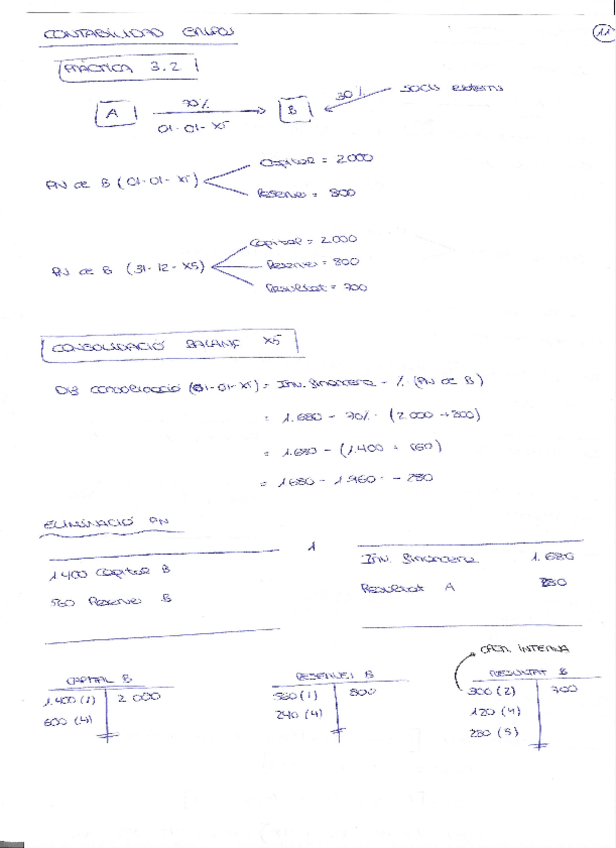 CONTABILIDAD GRUPOS
11
PRÀCTICA 3.2
A 70% B 30% SOCIS externs
01-01-X5
Capital = 2000
PN de B (01-01-X5)
Reserves = 800
Capital = 2.000
PN de B (31-12-X5) Reserves = 800
Resultat = 700
CONSOLIDACIÓ BALANÇ X5
Dif consolidació (01-01-X5) = Inv. financera - % (PN de B)
= 1.680 - 70% · (2.000 + 800)
= 1.680 - (1.400 + 560)
= 1680 - 1.960 = - 280
ELIMINACIÓ PN
1
1400 Capital B Inv. financera 1.680
560 Reserves B Resultat A 280
OPER. INTERNA
CAPITAL B RESERVES B RESULTAT B
1.400 (1) 2.000 560 (1) 800 300 (2) 700
600 (4) 240 (4) 120 (4)
280 (5)